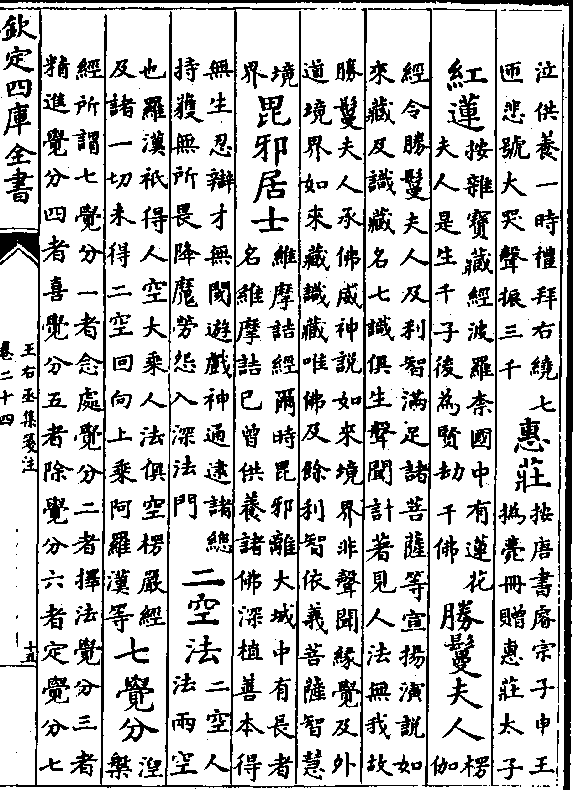 泣供養一時禮拜右繞七
匝悲號大哭聲振三千
惠莊
按唐書睿宗子申王
撝薨冊贈惠莊太子
紅蓮
按雜寶藏經波羅柰國中有蓮花
夫人是生千子後為賢劫千佛
勝鬘夫人
楞
伽
經令勝鬘夫人及利智滿足諸菩薩等宣揚演說如
來藏及識藏名七識俱生聲聞計著見人法無我故
勝鬘夫人承佛威神說如來境界非聲聞緣覺及外
道境界如來藏識藏唯佛及餘利智依義菩薩智慧
境
界
毘邪居士
維摩詰經爾時毘邪離大城中有長者
名維摩詰已曾供養諸佛深植善本得
無生忍辯才無閡遊戲神通逮諸總
持獲無所畏降魔勞怨入深法門
二空法
二空人
法兩空
也羅漢祇得人空大乘人法俱空楞嚴經
及諸一切未得二空回向上乘阿羅漢等
七覺分
湼
槃
經所謂七覺分一者念處覺分二者擇法覺分三者
精進覺分四者喜覺分五者除覺分六者定覺分七
欽定四庫全書
王右丞集箋注
卷二十四
十五